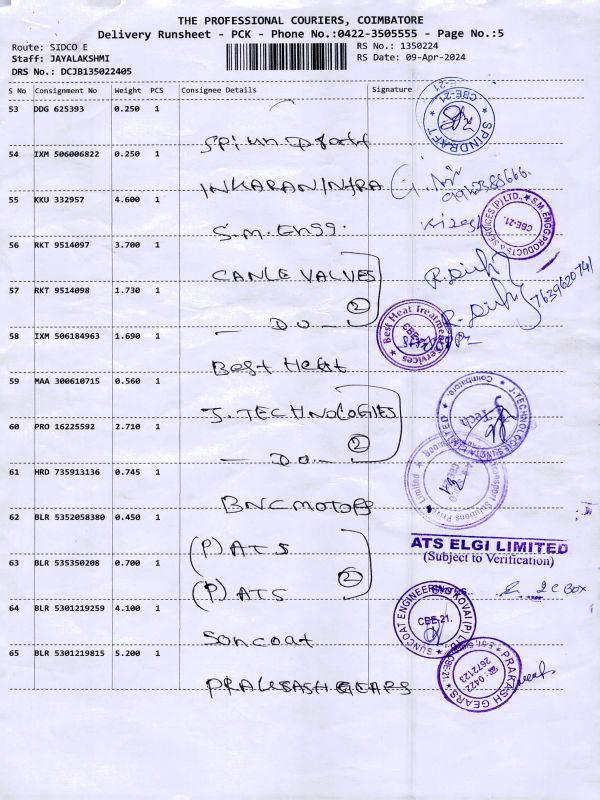 THE PROFESSIONAL COURIERS, COIMBATORE
Delivery Runsheet - PCK - Phone No.:0422-3505555 - Page No.:5
Route: SIDCO E
RS No.: 1350224
Staff: JAYALAKSHMI
RS Date: 09-Apr-2024
DRS No.: DCJB135022405
S No Consignment No Weight PCS Consignee Details Signature
53 DDG 625393 0.250 1
CBE-21. SPINDRAFT
54 IXM 506006822 0.250 1
INKARAN INFRA
55 KKU 332957 4.600 1
S.M. Engg.
S.M. ENGG.PRODUCTS & SERVICES (P) LTD., CBE-21.
56 RKT 9514097 3.700 1
CANLE VALVES
57 RKT 9514098 1.730 1
— DO — 2
7639620741
58 IXM 506184963 1.690 1
Best Heat
Best Heat Treatment Services
59 MAA 300610715 0.560 1
J. TECHNOLOGIES
J-TECHNOLOGIES INDIA LIMITED Coimbatore.
60 PRO 16225592 2.710 1
— DO — 2
61 HRD 735913136 0.745 1
BNC motors
Transport Solutions Private Limited
62 BLR 5352058380 0.450 1
(P) ATS
ATS ELGI LIMITED
(Subject to Verification)
63 BLR 535350208 0.700 1
(P) ATS 2
2 C BOX
64 BLR 5301219259 4.100 1
Suncoat
SUNCOAT ENGINEERING KOVAI (P) LTD CBE-21.
65 BLR 5301219815 5.200 1
PRAKASH GEARS
PRAKASH GEARS CBE-21 0422 2672123